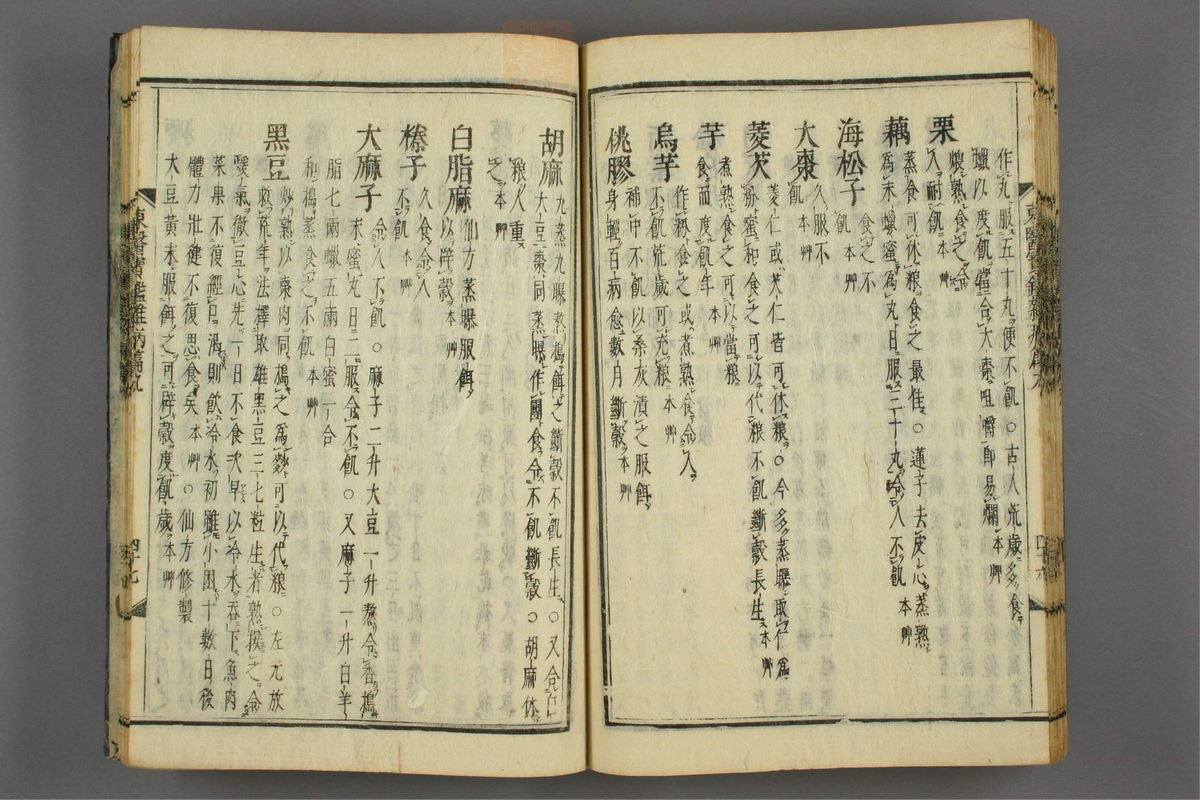 作丸服五十丸便不飢○古人荒歲多食
蠟以度飢當合大棗咀嚼卽易爛 本艸
栗
煨熟食之令
人耐飢 本艸
藕
蒸食可休粮食之最佳○蓮子去皮心蒸熟
爲末蠟蜜爲丸日服三十丸令人不飢 本艸
海松子
食之不
飢 本艸
大棗
久服不
飢 本艸
菱芡
菱仁或芡仁皆可休粮○今多蒸曝取仁爲
粉蜜和食之可以代粮不飢斷穀長生 本艸
芋
煮熟食之可以當粮
食而度飢年 本艸
烏芋
作粉食之或煮熟食令人
不飢荒歲可充粮 本艸
桃膠
補中不飢以桑灰漬之服餌
身輕百病愈數月斷穀 本艸
東醫寶鑑雜病篇九
四十六
胡麻
九蒸九曝煮搗餌之斷穀不飢長生○又合白
大豆棗同蒸曝作團食令不飢斷穀○胡麻休
粮人重
之 本艸
白脂麻
仙方蒸曝服餌
以辟穀 本艸
榛子
久食令人
不飢 本艸
大麻子
令人不飢○麻子二升大豆一升熬令香搗
末蜜丸日二服令不飢○又麻子一升白羊
脂七兩蠟五兩白蜜一合
和搗蒸食之不飢 本艸
黑豆
炒熟以棗肉同搗之爲麨可以代粮○左元放
救荒年法擇取雄黑豆三七粒生者熟挼之令
煖氣徹豆心先一日不食次早以冷水吞下魚肉
菜果不復經口渴則飮冷水初雖小困十數日後
體力壯健不復思食矣 本艸○仙方修製
大豆黃末服餌之可辟穀度飢歲 本艸
東醫寶鑑雜病篇九
四十七